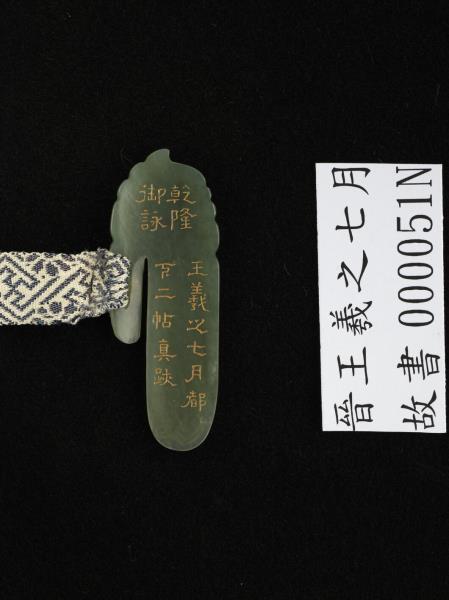 乾隆
御詠
王羲之七月都
下二帖真跡
晉王羲之七月
故書 000051N